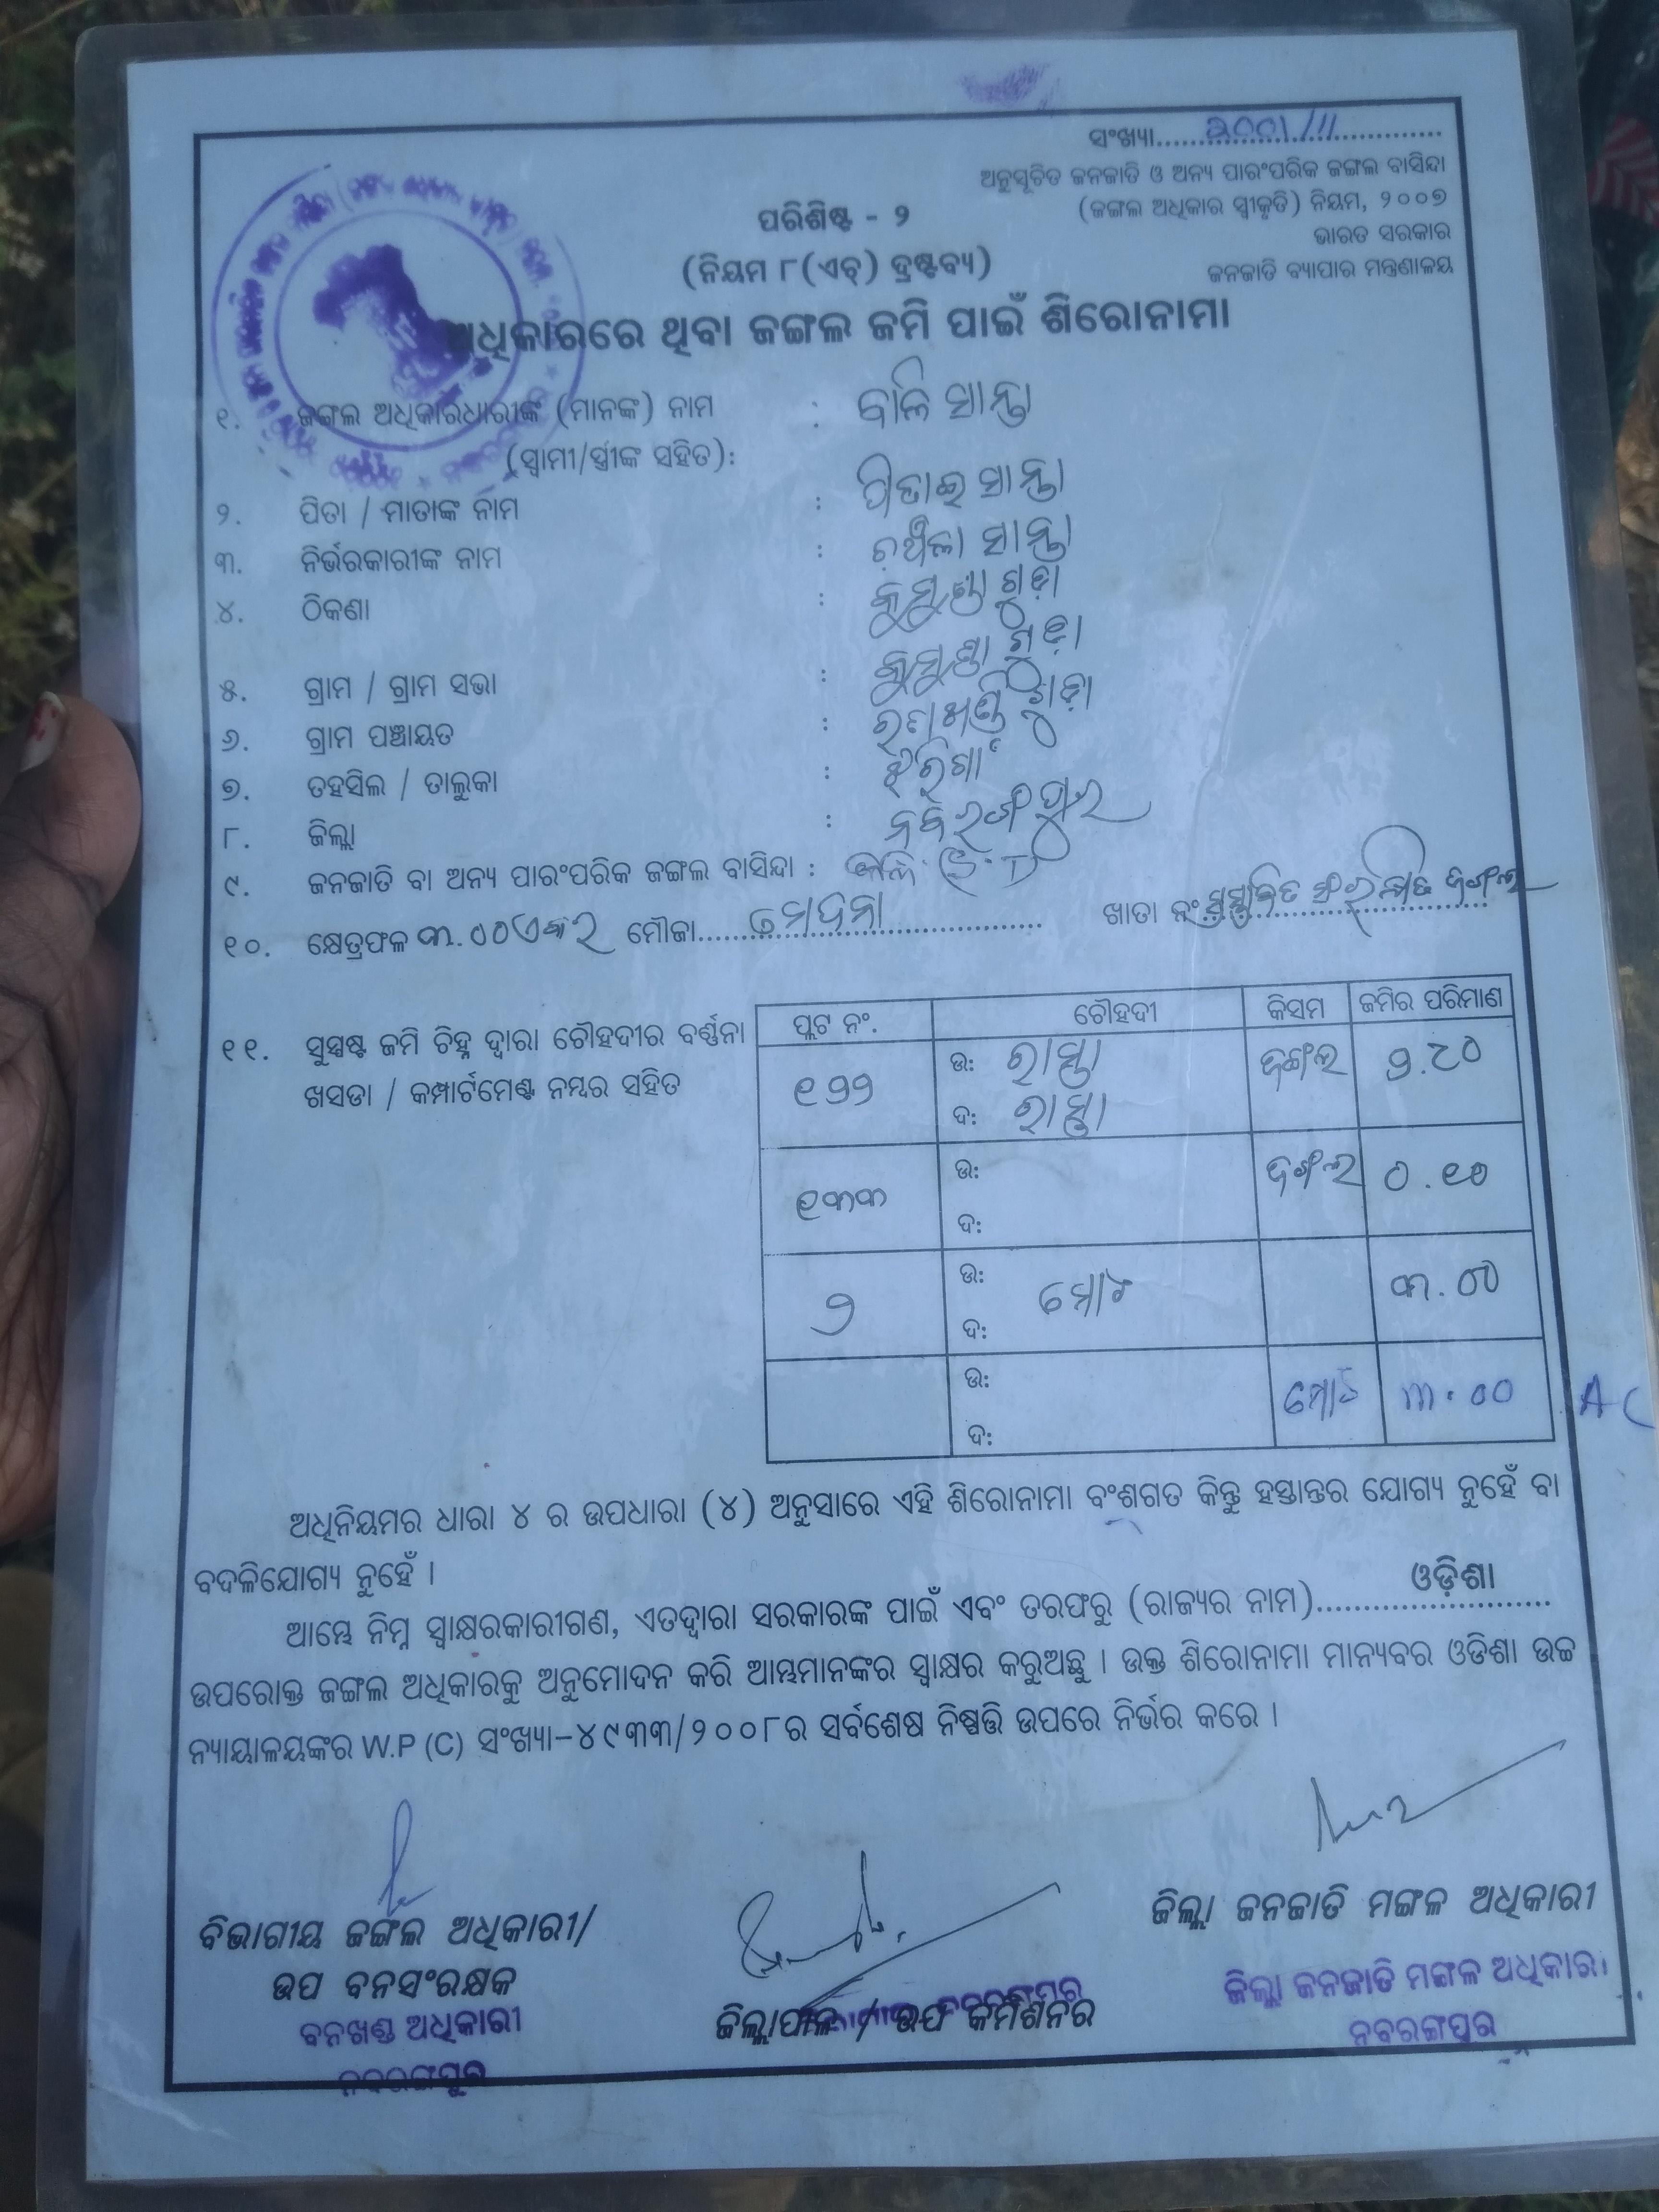 ସଂଖ୍ୟା..............................
ଅନୁସୂଚିତ ଜନଜାତି ଓ ଅନ୍ୟ ପାରଂପରିକ ଜଙ୍ଗଲ ବାସିନ୍ଦା
(ଜଙ୍ଗଲ ଅଧିକାର ସ୍ୱୀକୃତି) ନିୟମ, ୨୦୦୭
ଭାରତ ସରକାର
ଜନଜାତି ବ୍ୟାପାର ମନ୍ତ୍ରଣାଳୟ
ପରିଶିଷ୍ଟ - ୨
(ନିୟମ ୮(ଏଚ୍) ଦ୍ରଷ୍ଟବ୍ୟ)
ଅଧିକାରରେ ଥିବା ଜଙ୍ଗଲ ଜମି ପାଇଁ ଶିରୋନାମା
୧. ଜଙ୍ଗଲ ଅଧିକାରଧାରୀଙ୍କ (ମାନଙ୍କ) ନାମ : ବାଳି ସାନ୍ତା
(ସ୍ୱାମୀ/ସ୍ତ୍ରୀଙ୍କ ସହିତ):
୨. ପିତା / ମାତାଙ୍କ ନାମ : ସାନ୍ତା
୩. ନିର୍ଭରକାରୀଙ୍କ ନାମ : ଚଞ୍ଚଳା ସାନ୍ତା
୪. ଠିକଣା :
୫. ଗ୍ରାମ / ଗ୍ରାମ ସଭା :
୬. ଗ୍ରାମ ପଞ୍ଚାୟତ :
୭. ତହସିଲ / ତାଲୁକା : ଝରିଗାଁ
୮. ଜିଲ୍ଲା : ନବରଙ୍ଗପୁର
୯. ଜନଜାତି ବା ଅନ୍ୟ ପାରଂପରିକ ଜଙ୍ଗଲ ବାସିନ୍ଦା :
୧୦. କ୍ଷେତ୍ରଫଳ ୩.୦୦ ଏକର ମୌଜା.............................. ଖାତା ନଂ ଜଙ୍ଗଲ
୧୧. ସୁସ୍ପଷ୍ଟ ଜମି ଚିହ୍ନ ଦ୍ୱାରା ଚୌହଦୀର ବର୍ଣ୍ଣନା
ଖସଡା / କମ୍ପାର୍ଟମେଣ୍ଟ ନମ୍ବର ସହିତ
ପ୍ଲଟ ନଂ. ଚୌହଦୀ କିସମ ଜମିର ପରିମାଣ
ଉ: ରାସ୍ତା ଜଙ୍ଗଲ ୨.୯୦
ଦ: ରାସ୍ତା
୧୩୩ ଉ: ଜଙ୍ଗଲ ୦.୧୦
ଦ:
୨ ଉ: ମୋଟ ୩.୦୦
ଦ:
ଉ: ମୋଟ ୩.୦୦ AC
ଦ:
ଅଧିନିୟମର ଧାରା ୪ ର ଉପଧାରା (୪) ଅନୁସାରେ ଏହି ଶିରୋନାମା ବଂଶଗତ କିନ୍ତୁ ହସ୍ତାନ୍ତର ଯୋଗ୍ୟ ନୁହେଁ ବା
ବଦଳିଯୋଗ୍ୟ ନୁହେଁ ।
ଆମ୍ଭେ ନିମ୍ନ ସ୍ୱାକ୍ଷରକାରୀଗଣ, ଏତଦ୍ୱାରା ସରକାରଙ୍କ ପାଇଁ ଏବଂ ତରଫରୁ (ରାଜ୍ୟର ନାମ)......ଓଡ଼ିଶା......
ଉପରୋକ୍ତ ଜଙ୍ଗଲ ଅଧିକାରକୁ ଅନୁମୋଦନ କରି ଆମ୍ଭମାନଙ୍କର ସ୍ୱାକ୍ଷର କରୁଅଛୁ । ଉକ୍ତ ଶିରୋନାମା ମାନ୍ୟବର ଓଡିଶା ଉଚ୍ଚ
ନ୍ୟାୟାଳୟଙ୍କର W.P (C) ସଂଖ୍ୟା-୪୯୩୩/୨୦୦୮ର ସର୍ବଶେଷ ନିଷ୍ପତ୍ତି ଉପରେ ନିର୍ଭର କରେ ।
ବିଭାଗୀୟ ଜଙ୍ଗଲ ଅଧିକାରୀ/
ଉପ ବନସଂରକ୍ଷକ
ବନଖଣ୍ଡ ଅଧିକାରୀ
ନବରଙ୍ଗପୁର
ଜିଲ୍ଲାପାଳ / ଉପ କମିଶନର
ଜିଲ୍ଲା ଜନଜାତି ମଙ୍ଗଳ ଅଧିକାରୀ
ଜିଲ୍ଲା ଜନଜାତି ମଙ୍ଗଳ ଅଧିକାରୀ
ନବରଙ୍ଗପୁର